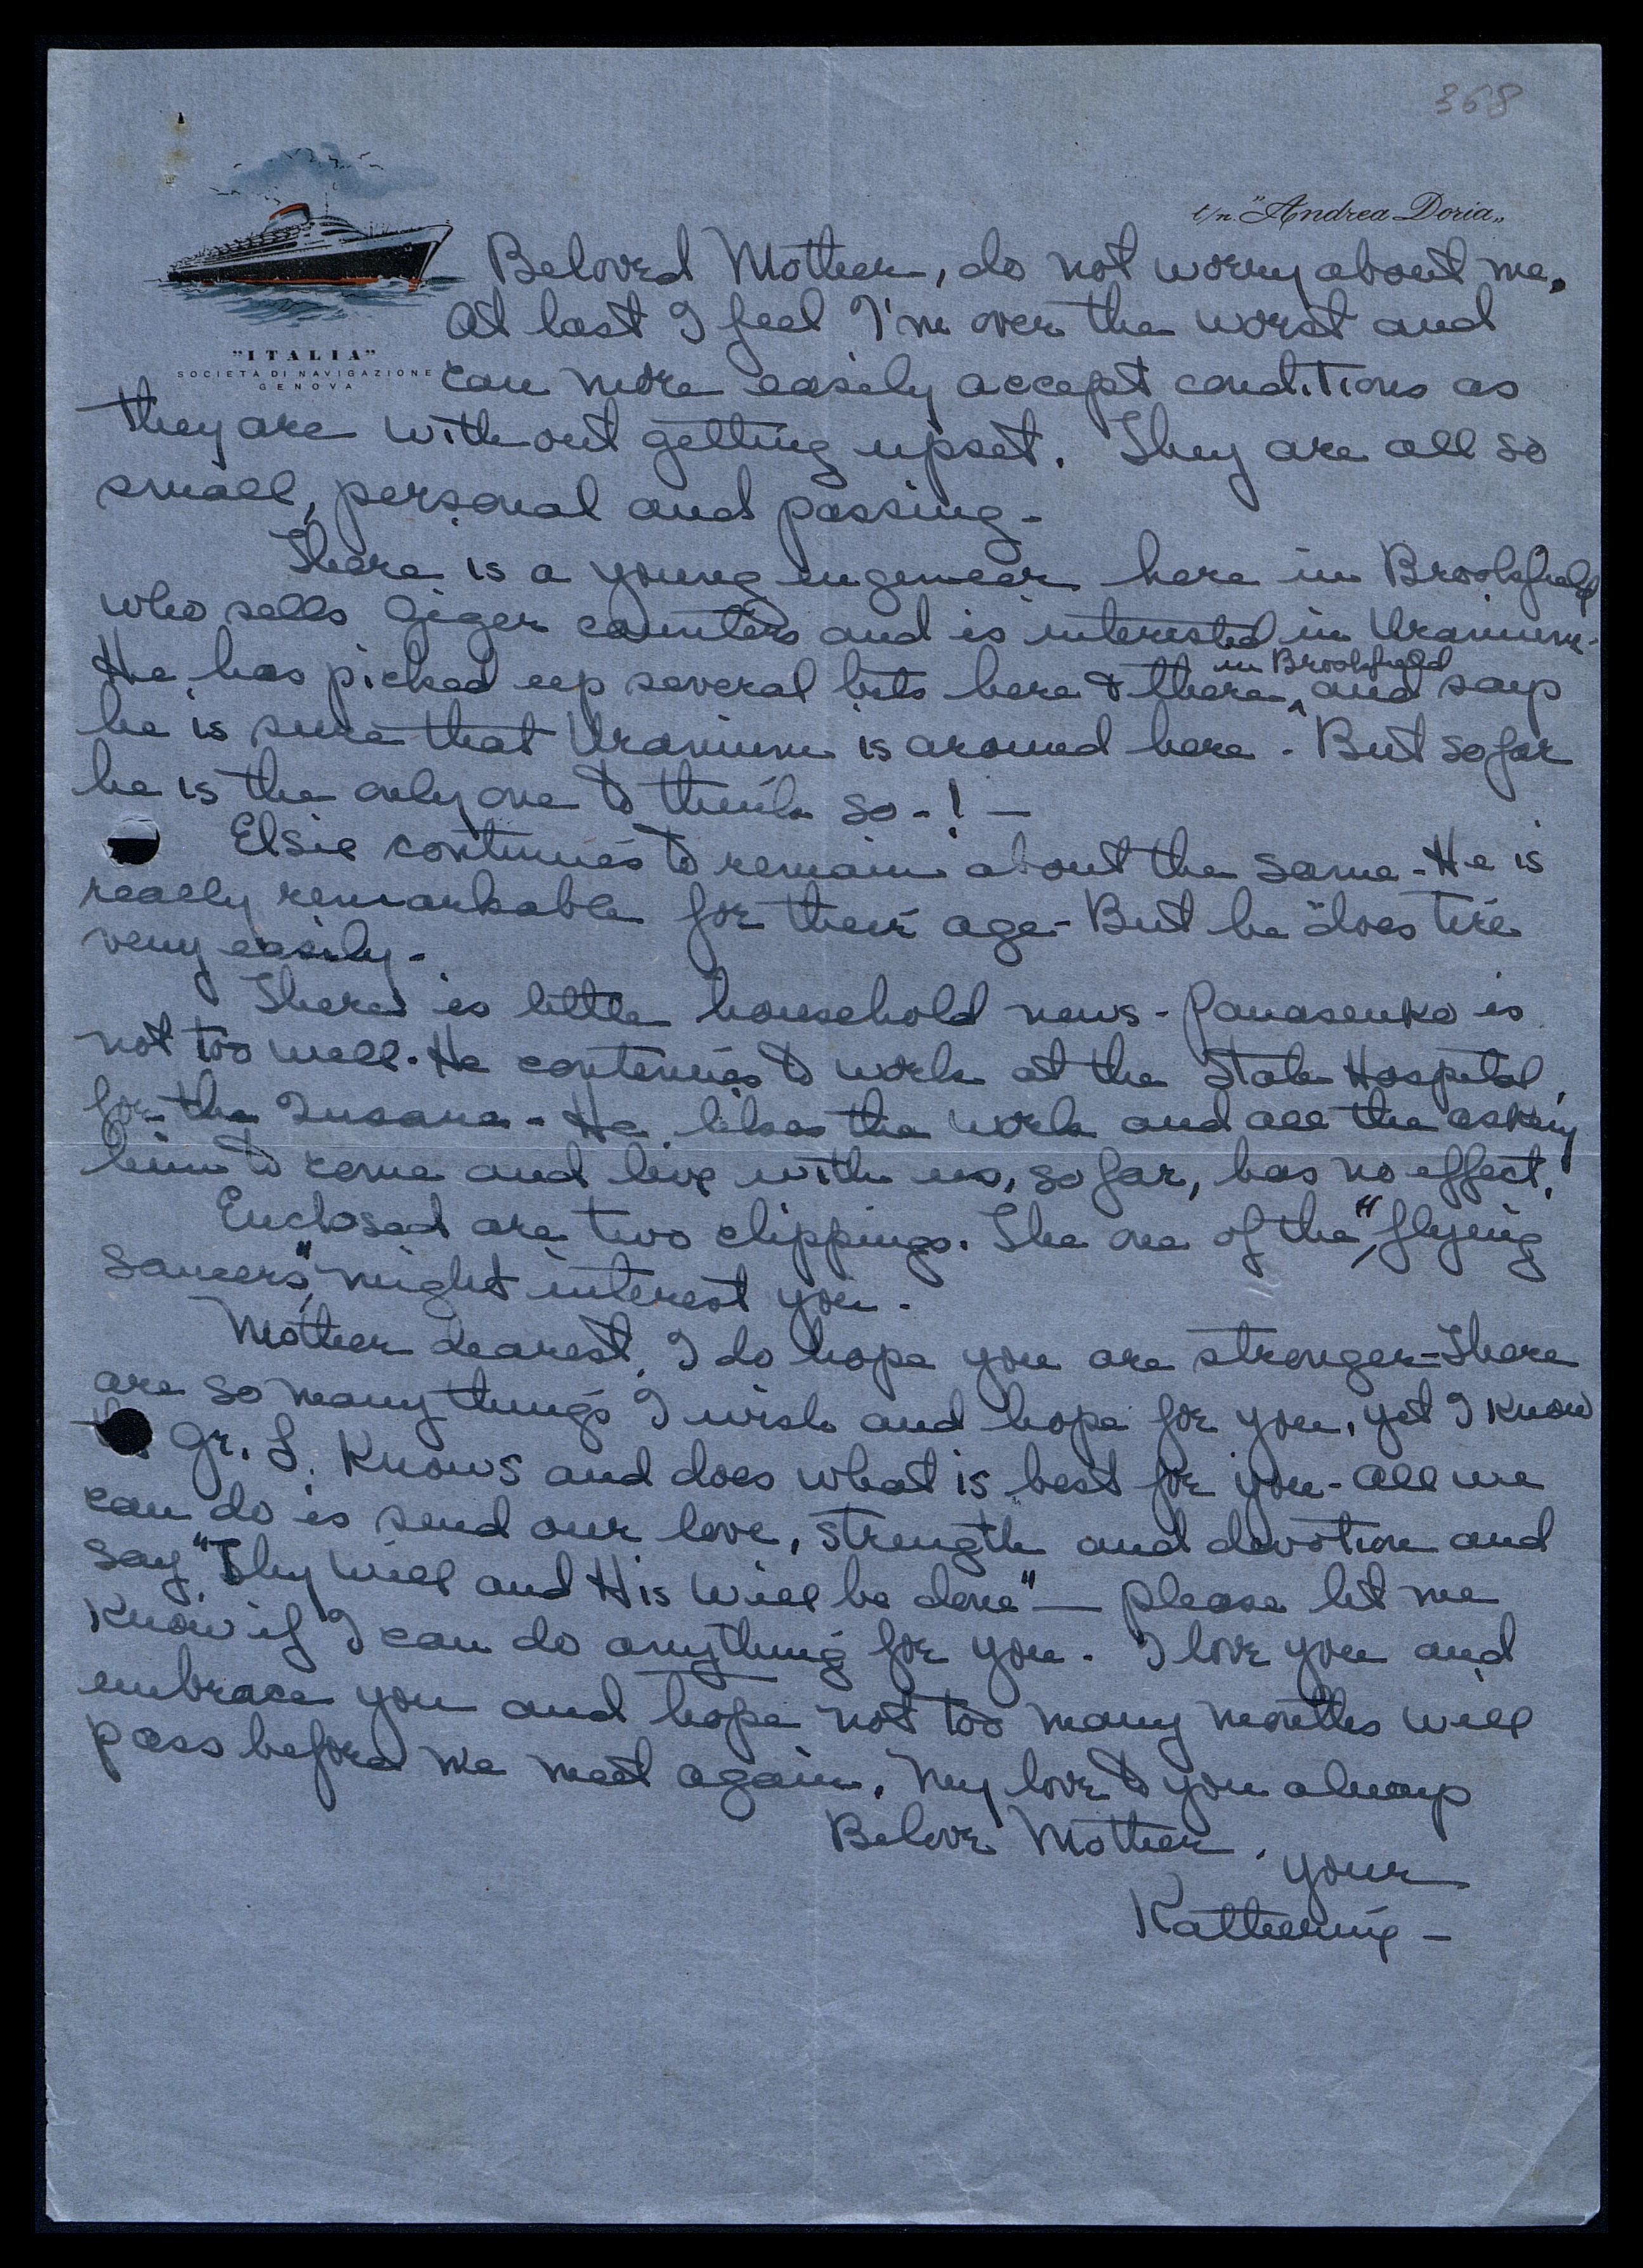 368
t/n. "Andrea Doria"
"ITALIA"
SOCIETA DI NAVIGAZIONE
GENOVA
Beloved Mother, do not worry about me.
At last I feel I'm over the worst and
can more easily accept conditions as
they are without getting upset. They are all so
small, personal and passing-
There is a young engineer here in Brookfield
who sells Giger counters and is interested in Uranium.
in Brookfield
He has picked up several bits here & there ^ and says
he is sure that Uranium is around here. But so far
he is the only one to think so-! —
Elsie continues to remain about the same. He is
really remarkable for their age- But he does tire
very easily-
There is little household news- Panasenko is
not too well. He continues to work at the State Hospital
for the Insane- He likes the work and all the asking
him to come and live with us, so far, has no effect.
Enclosed are two clippings. The one of the "flying
saucers" might interest you.
Mother dearest, I do hope you are stronger- There
are so many things I wish and hope for you, yet I know
Gr. L. Knows and does what is best for you- All we
can do is send our love, strength and devotion and
say "Thy will and His will be done" — please let me
know if I can do anything for you. I love you and
embrace you and hope not too many months will
pass before we meet again. My love to you always
Belove Mother. your
Katherine -